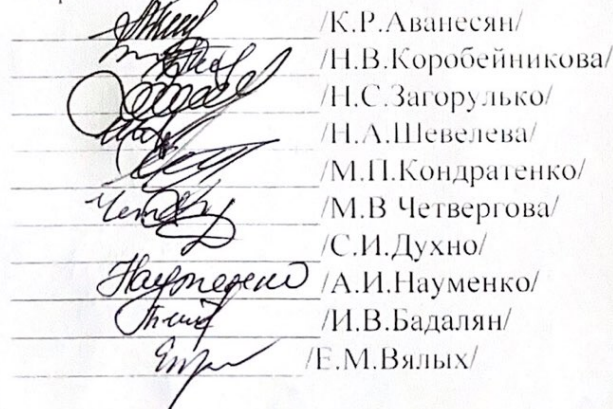 /К.Р.Аванесян/
/Н.В.Коробейникова/
/Н.С.Загорулько/
/Н.А.Шевелева/
/М.П.Кондратенко/
/М.В Четвергова/
/С.И.Духно/
/А.И.Науменко/
/И.В.Бадалян/
/Е.М.Вялых/